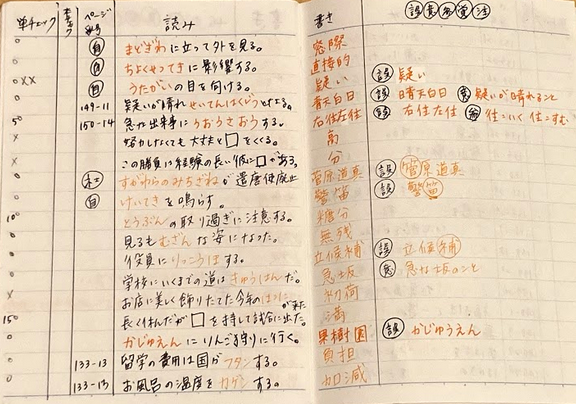 単チェック ページ番号 読み
自 まどぎわに立って外を見る。
自 ちょくせつてきに影響する。
○×× 自 うたがいの目を向ける。
149-11 疑いが晴れせいてんはくじつとなる。
50 150-14 急な出来事にうおうさおうする。
× 努力しなくても大丈夫と□をくくる。
× この勝負は経験の長い彼に□がある。
社 すがわらのみちざねが遣唐使廃止
自 けいてきを鳴らす。
100 とうぶんの取り過ぎに注意する。
見るもむざんな姿になった。
役員にりっこうほする。
学校にいくまでの道はきゅうはんだ。
× お店に美しく飾りたてた今年のはつにが来た
150 長く休んだが□を持して試合に出た。
かじゅえんにりんご狩りに行く。
133-13 留学の費用は国がフタンする。
133-13 お風呂の温度をカゲンする。
書き 誤 意 注
窓際
直接的
疑い 誤 疑い
青天白日 誤 晴天白日 意 疑いが晴れること
右往左往 誤 右住左住 往:いく 住:すむ
高
分
菅原道真 誤 管原道真
警笛 誤 警笛
糖分
無残
立候補 誤 立候補
急坂 意 急な坂のこと
初荷
満
果樹園 誤 かじゅうえん
負担
加減